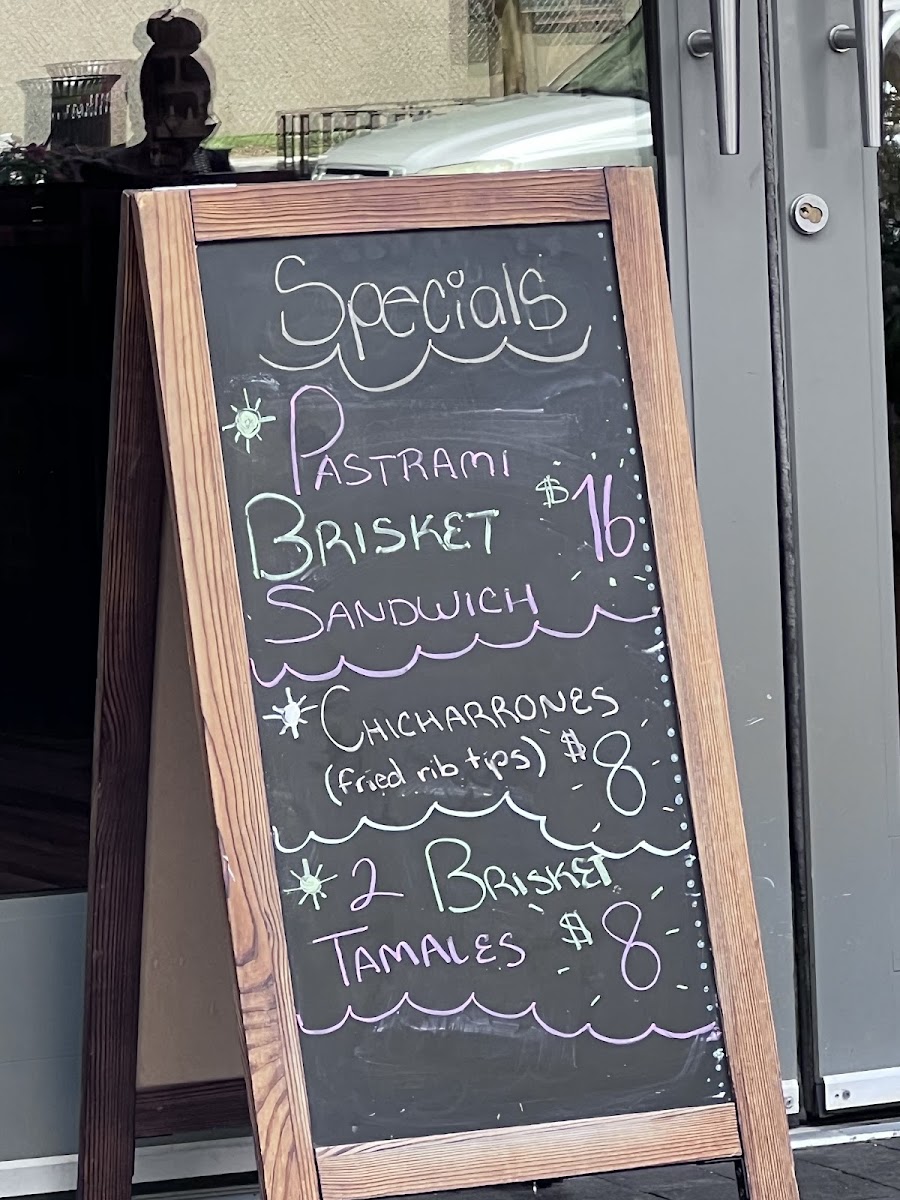 Specials
PASTRAMI
BRISKET $16
SANDWICH
CHICHARRONES
(fried rib tips) $8
2 BRISKET
TAMALES $8